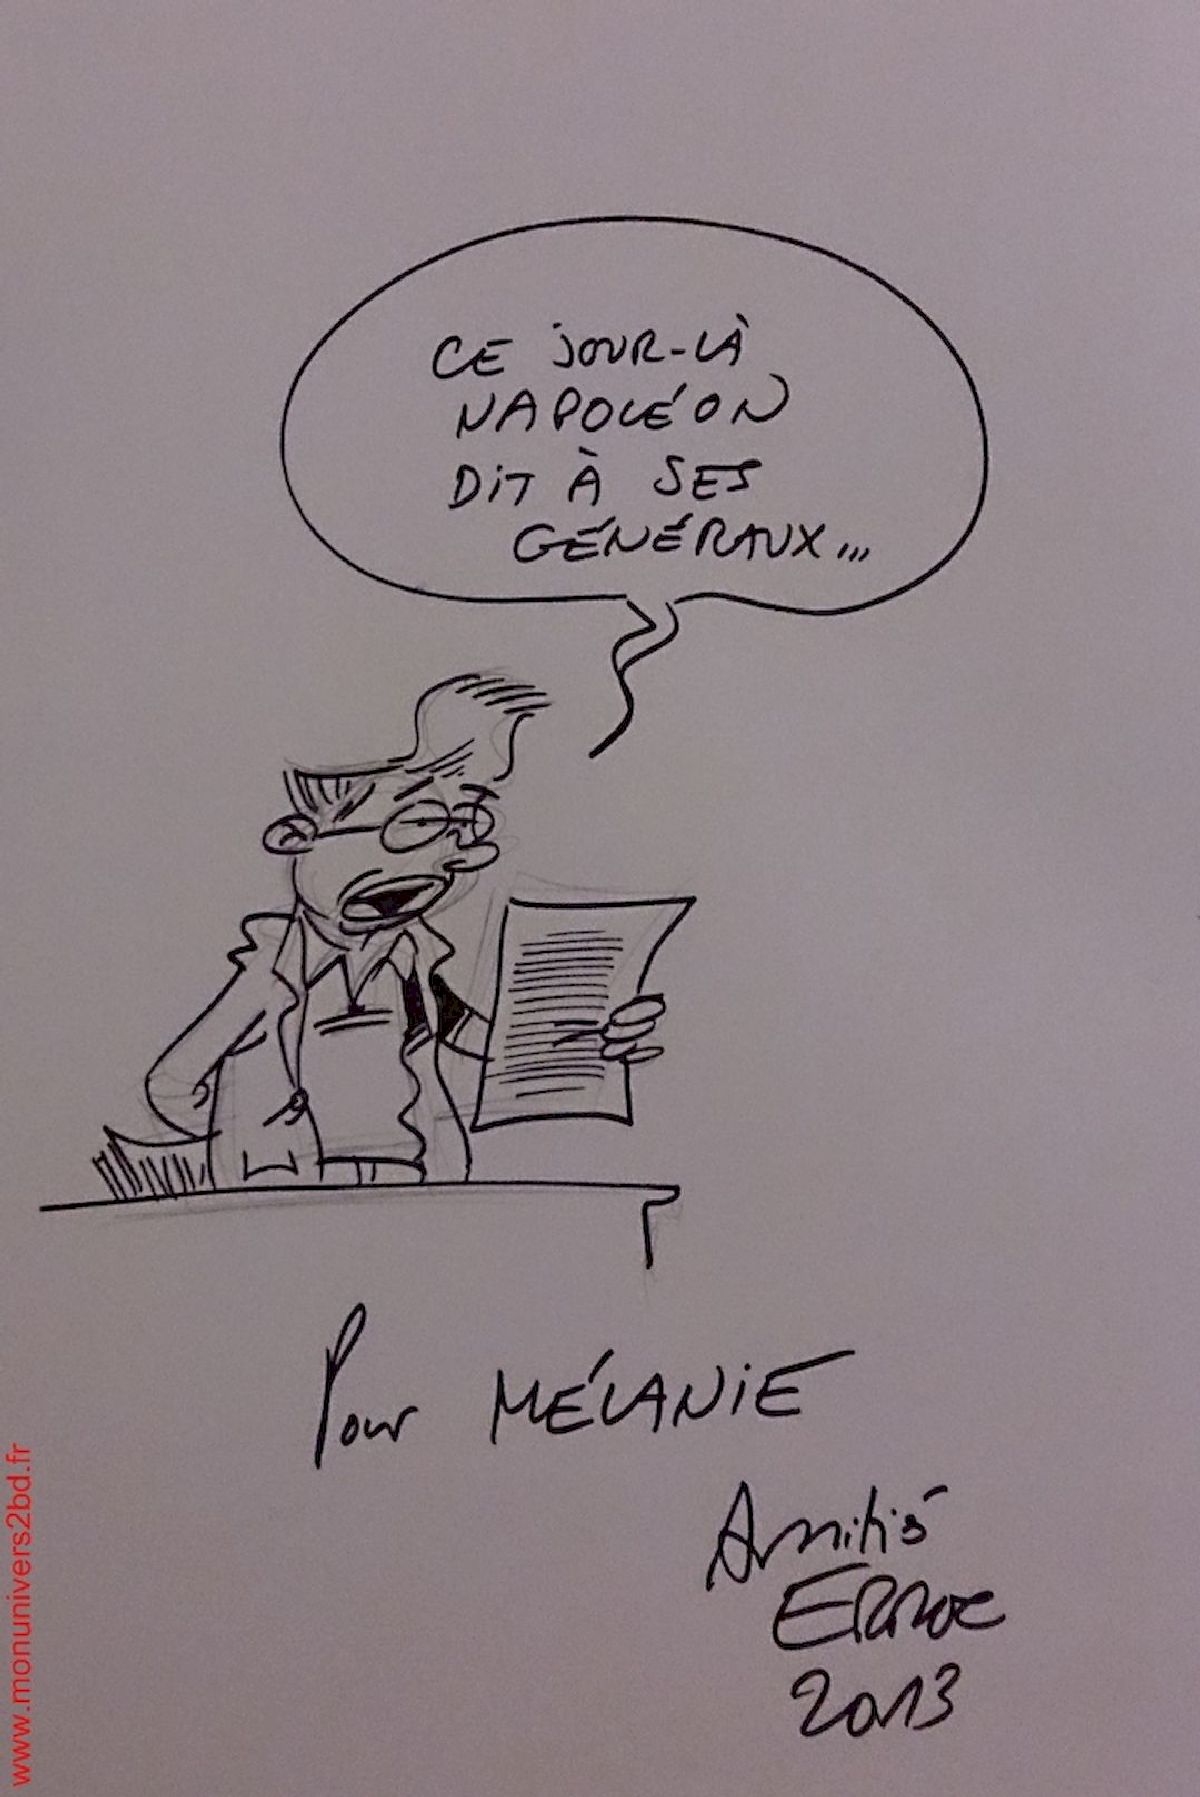 CE JOUR-LÀ
NAPOLÉON
DIT À SES
GÉNÉRAUX...
Pour MÉLANIE
Amitiés
ERROC
2013
www.monunivers2bd.fr